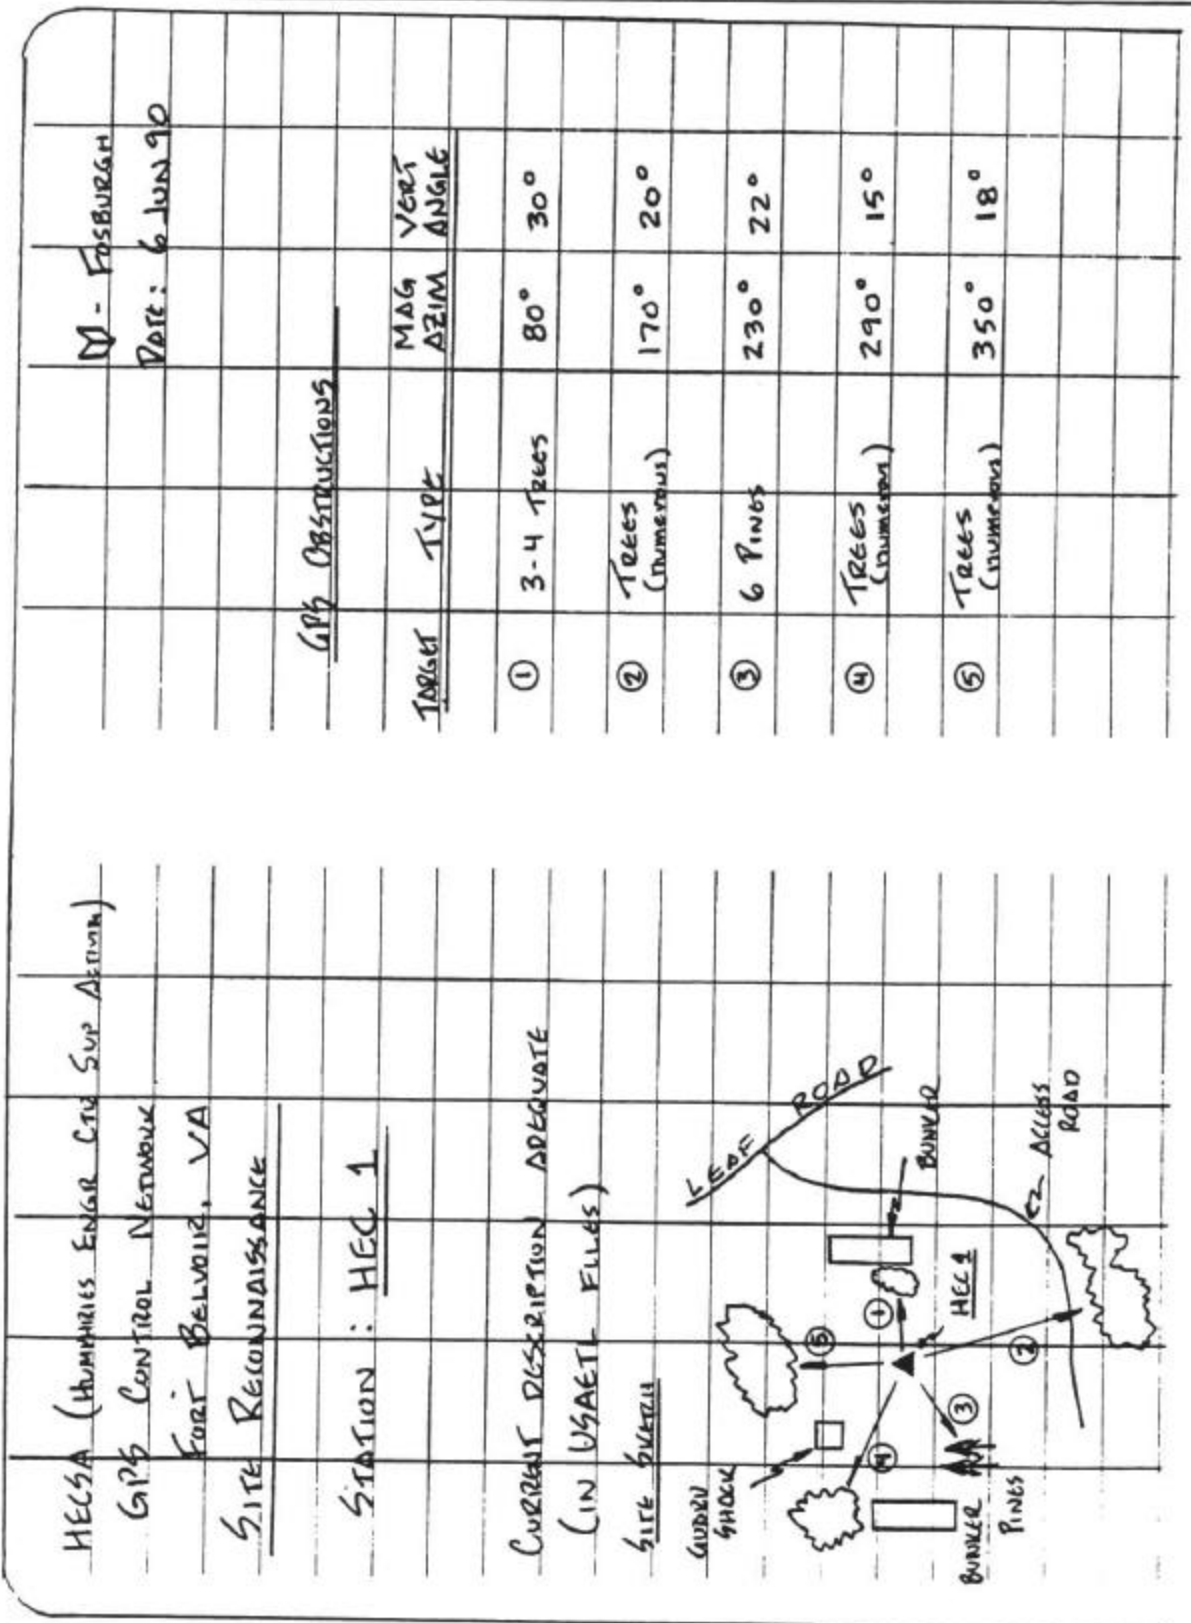 HECSA (HUMPHRIES ENGR CTR SUP ACTIVITY)
GPS CONTROL NETWORK
FORT BELVOIR, VA
SITE RECONNAISSANCE
STATION : HEC 1
CURRENT DESCRIPTION ADEQUATE
(IN USAETL FILES)
SITE SKETCH
LEAF ROAD
GUARD
SHACK
BUNKER
⑤
①
④
HEC 1
③
②
ACCESS
ROAD
BUNKER
PINES
- FOSBURGH
DATE: 6 JUN 90
GPS OBSTRUCTIONS
TARGET TYPE MAG AZIM VERT ANGLE
① 3-4 TREES 80° 30°
② TREES 170° 20°
(numerous)
③ 6 PINES 230° 22°
④ TREES 290° 15°
(numerous)
⑤ TREES 350° 18°
(numerous)